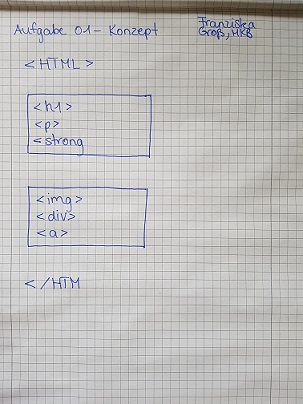 Aufgabe 01 - Konzept
Franziska
Groß, MKB
<HTML>
<h1>
<p>
<strong
<img>
<div>
<a>
</HTM